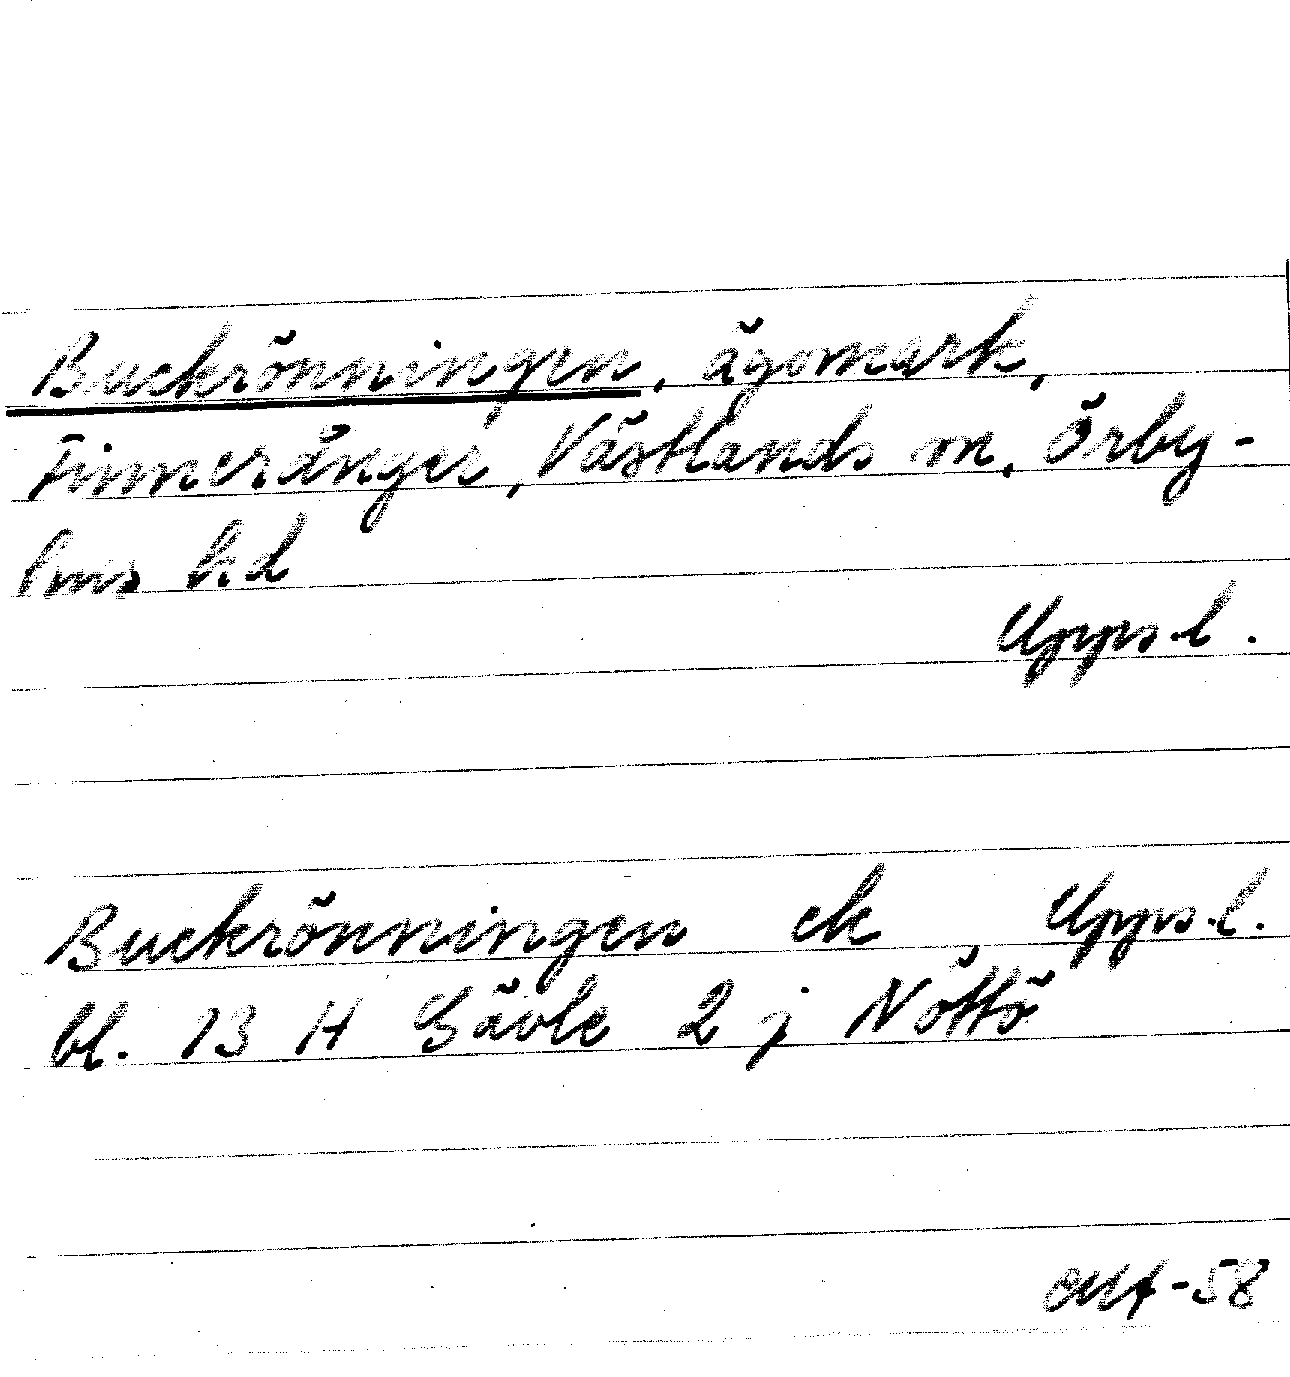 Buckrönningen, ägomark,
Finneränger, Västlands sn, Örby-
hus hd
Upps.l.
Buckrönningen ek , Upps.l.
bl. 13 H Gävle 2 j Nöttö
-58